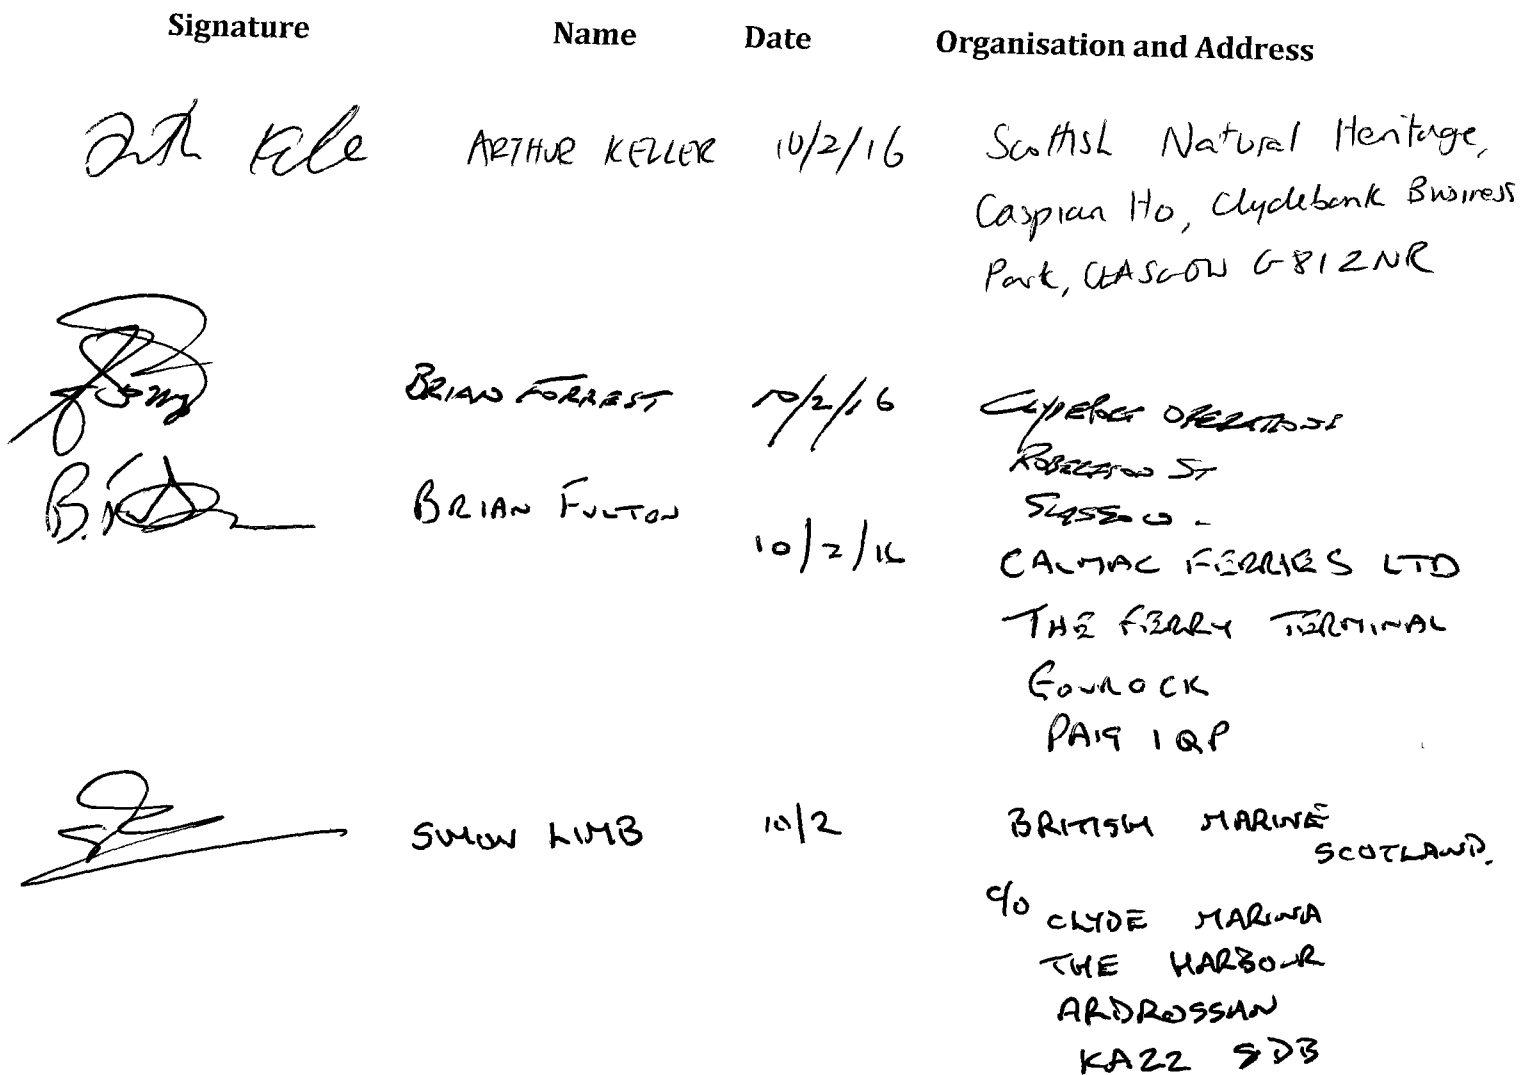 Signature Name Date Organisation and Address
ARTHUR KELLER 10/2/16 Scottish Natural Heritage,
Caspian Ho, Clydebank Business
Park, GLASGOW G81 2NR
BRIAN FORREST 10/2/16 CLYDEPORT OPERATIONS
ROBERTSON ST
GLASGOW.
BRIAN FULTON
10/2/16 CALMAC FERRIES LTD
THE FERRY TERMINAL
GOUROCK
PA19 1QP
SIMON LIMB 10/2 BRITISH MARINE
SCOTLAND.
c/o CLYDE MARINA
THE HARBOUR
ARDROSSAN
KA22 8DB